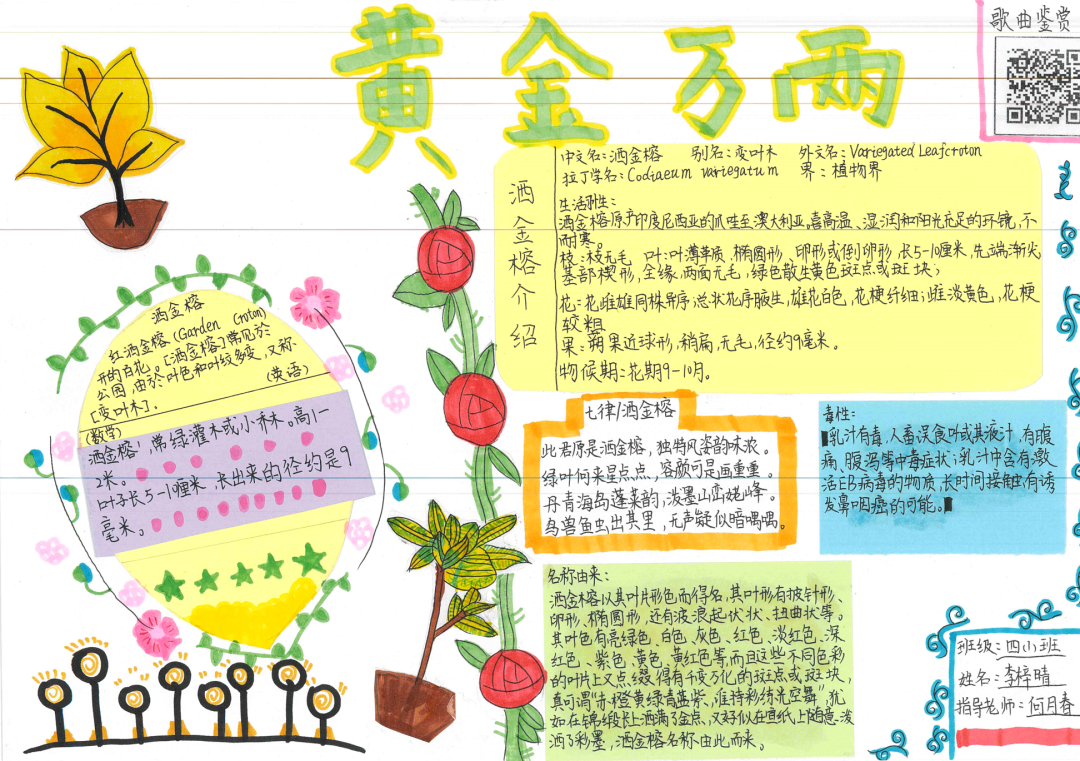 黄金万两
歌曲鉴赏
洒金榕介绍
中文名:洒金榕 别名:变叶木 外文名:Variegated Leafcroton
拉丁学名:Codiaeum variegatum 界:植物界
生活习性:
洒金榕原产印度尼西亚的爪哇至澳大利亚。喜高温、湿润和阳光充足的环镜,不
耐寒。
枝:枝无毛 叶:叶薄革质 椭圆形、卵形或倒卵形,长5-10厘米,先端渐尖
基部楔形,全缘,两面无毛,绿色散生黄色斑点或斑块;
花:花雌雄同株异序,总状花序腋生,雄花白色,花梗纤细;雌淡黄色,花梗
较粗
果:蒴果近球形,稍扁,无毛,径约9毫米。
物候期:花期9-10月。
洒金榕
红洒金榕(Garden Croton)
开的百花。[洒金榕]常见於
公园,由於叶色和叶纹多变,又称
[变叶木]. (英语)
(数学)
洒金榕,常绿灌木或小乔木。高1-
2米。
叶子长5-10厘米,长出来的径约是9
毫米。
七律/洒金榕
此君原是洒金榕,独特风姿韵味浓。
绿叶何来星点点,容颜可是画重重。
丹青海岛蓬莱韵,泼墨山峦姥峰。
鸟兽鱼虫出其里,无声疑似暗喁喁。
毒性:
乳汁有毒,人畜误食叶或其液汁,有腹
痛、腹泻等中毒症状;乳汁中含有激
活EB病毒的物质,长时间接触有诱
发鼻咽癌的可能。
名称由来:
洒金榕以其叶片形色而得名,其叶形有披针形、
卵形、椭圆形,还有波浪起伏状、扭曲状等。
其叶色有亮绿色、白色、灰色、红色、淡红色、深
红色、紫色、黄色、黄红色等,而且这些不同色彩
的叶片上又点缀得有千变万化的斑点或斑块,
真可谓“赤橙黄绿青蓝紫、谁持彩绸光空舞”,犹
如在锦缎长上洒满了金点,又好似在宣纸上随意泼
洒了彩墨,洒金榕名称由此而来。
班级:四(1)班
姓名:李梓晴
指导老师:何月春